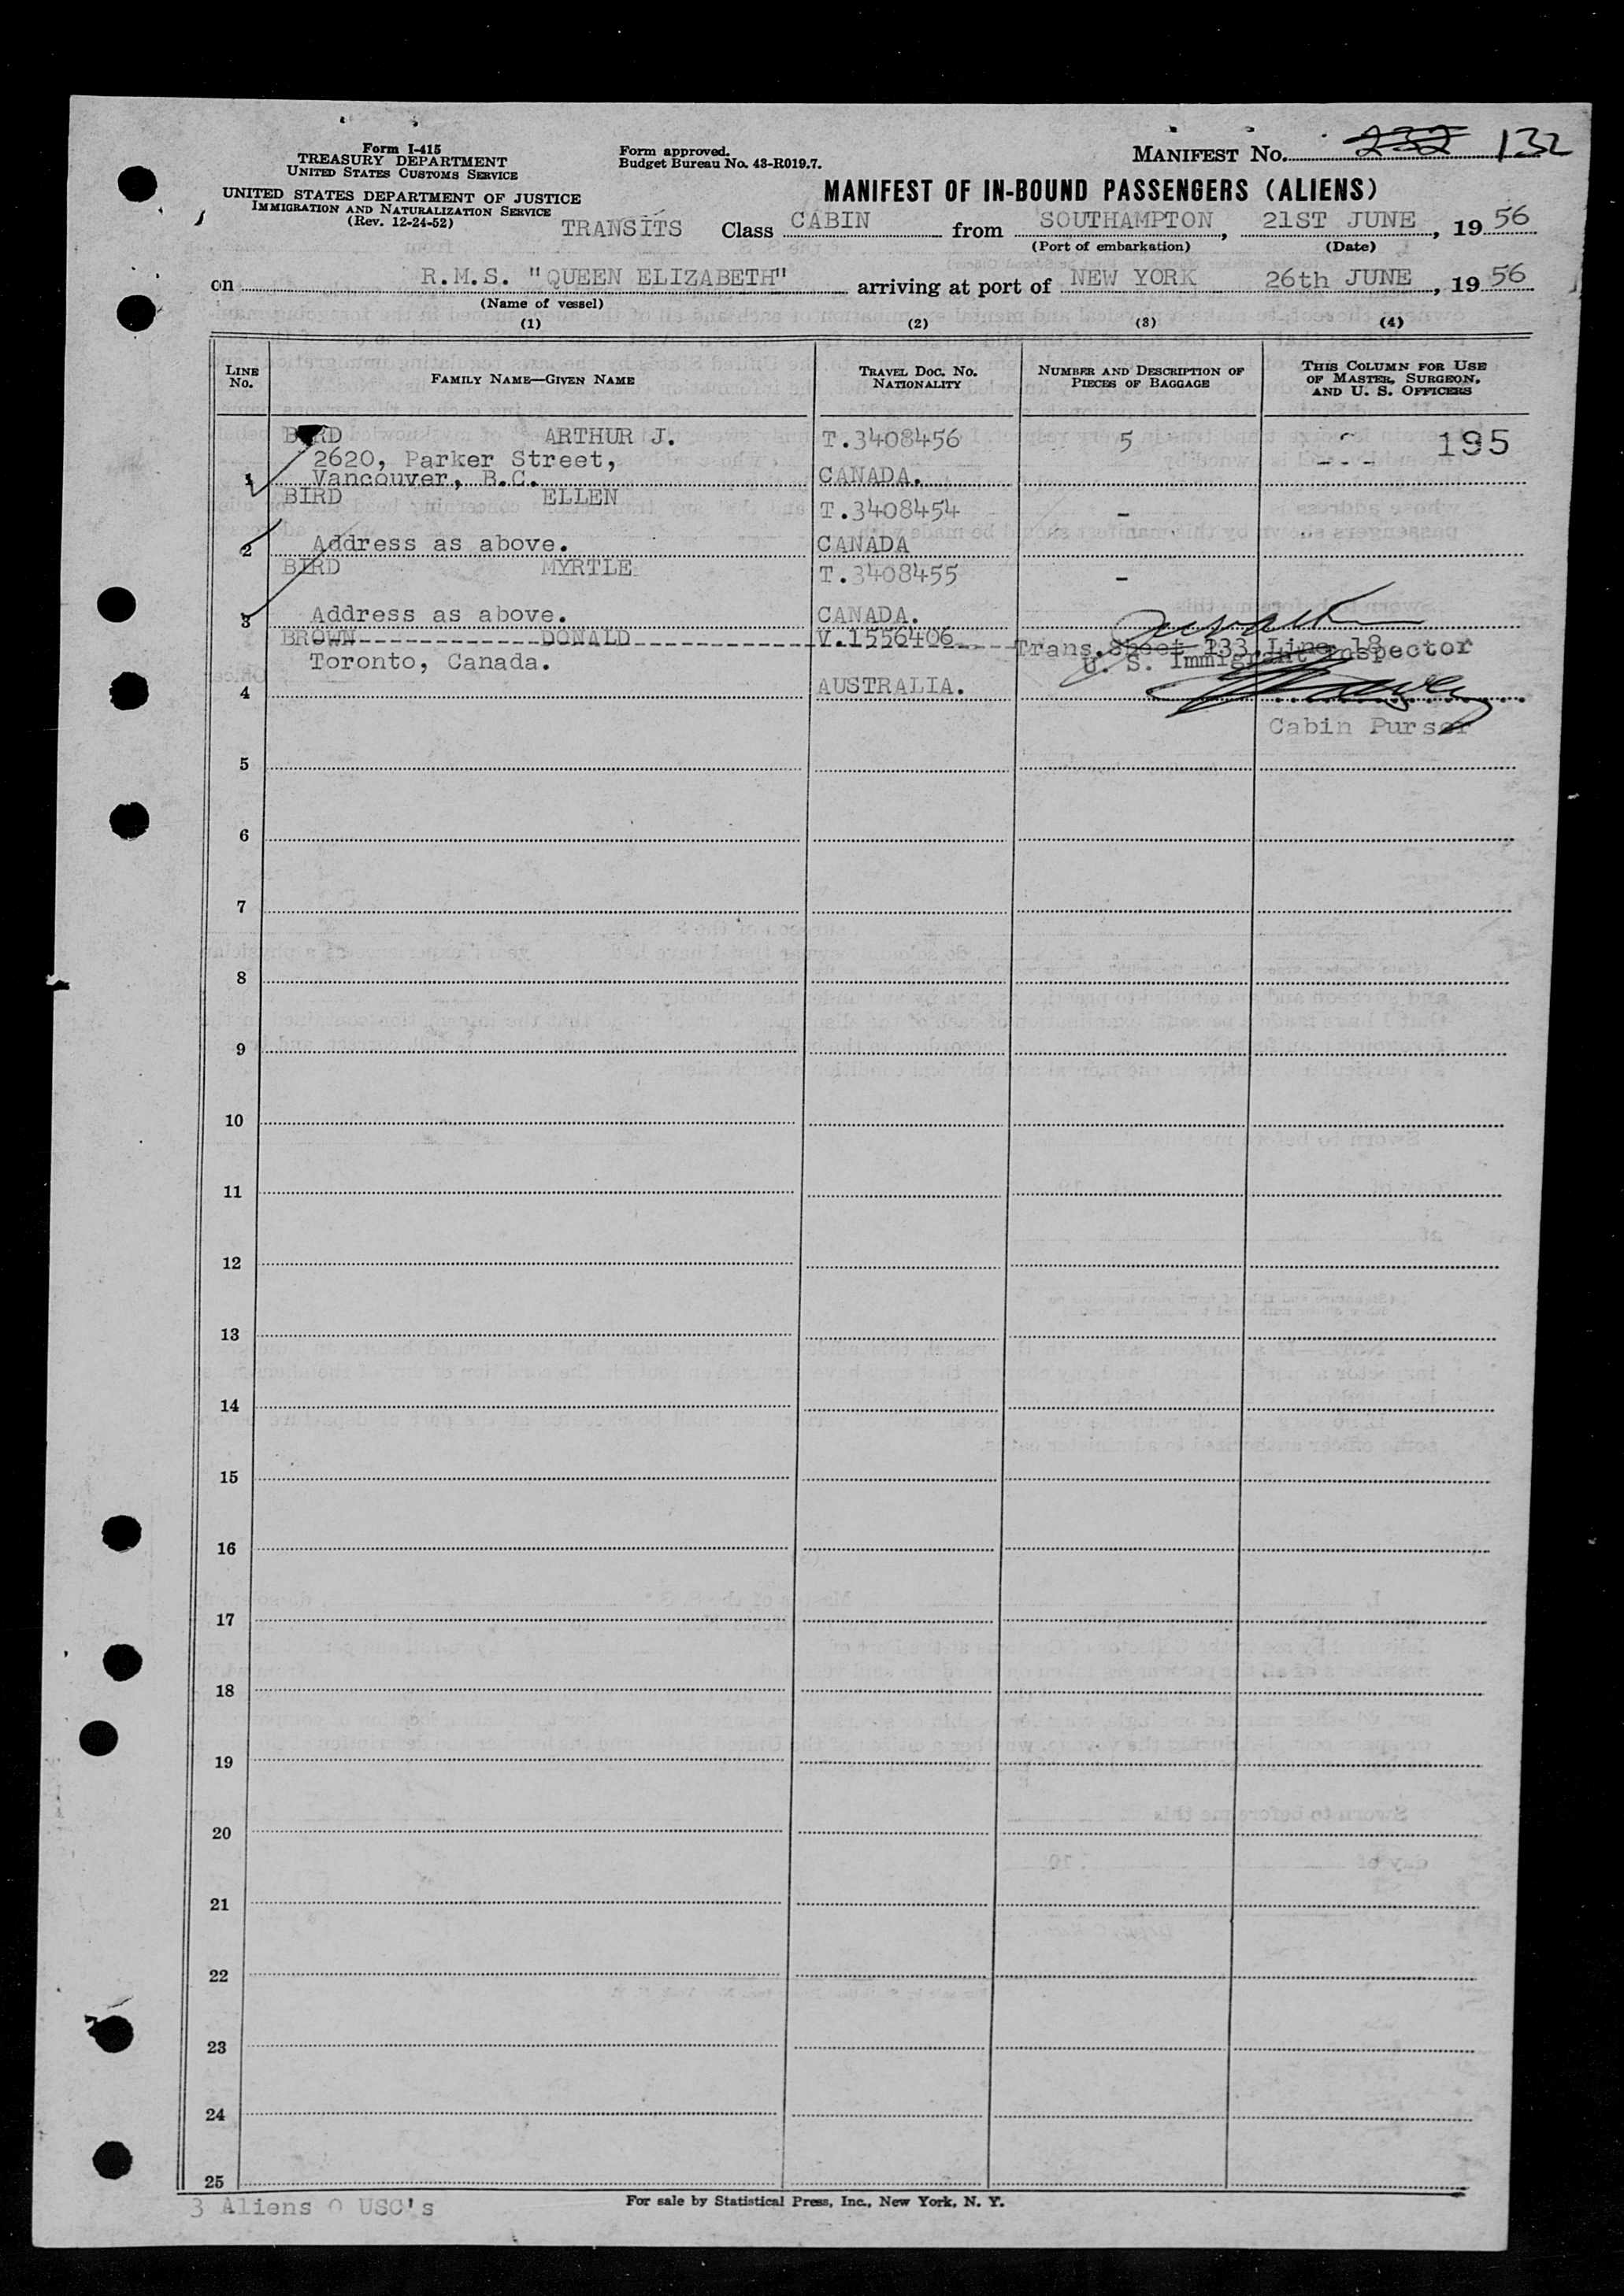 Form I-415
TREASURY DEPARTMENT
UNITED STATES CUSTOMS SERVICE
UNITED STATES DEPARTMENT OF JUSTICE
IMMIGRATION AND NATURALIZATION SERVICE
(Rev. 12-24-52)
Form approved.
Budget Bureau No. 43-R019.7.
MANIFEST No. 232 132
MANIFEST OF IN-BOUND PASSENGERS (ALIENS)
TRANSITS Class CABIN from SOUTHAMPTON, 21ST JUNE, 19 56
(Port of embarkation) (Date)
on R.M.S. "QUEEN ELIZABETH" arriving at port of NEW YORK 26th JUNE, 19 56
(Name of vessel)
(1) (2) (3) (4)
LINE No. FAMILY NAME—GIVEN NAME TRAVEL DOC. NO. NATIONALITY NUMBER AND DESCRIPTION OF PIECES OF BAGGAGE THIS COLUMN FOR USE OF MASTER, SURGEON, AND U. S. OFFICERS
BIRD ARTHUR J. T.3408456 5 195
2620, Parker Street, - - -
1 Vancouver, B.C. CANADA.
BIRD ELLEN T.3408454 -
2 Address as above. CANADA
BIRD MYRTLE T.3408455 -
3 Address as above. CANADA.
BROWN-------------DONALD-------------V.1556406----Trans.Sheet 133 Line 18
Toronto, Canada. U. S. Immigrant Inspector
4 AUSTRALIA.
Cabin Purser
5
6
7
8
9
10
11
12
13
14
15
16
17
18
19
20
21
22
23
24
25
3 Aliens 0 USC's
For sale by Statistical Press, Inc., New York, N. Y.